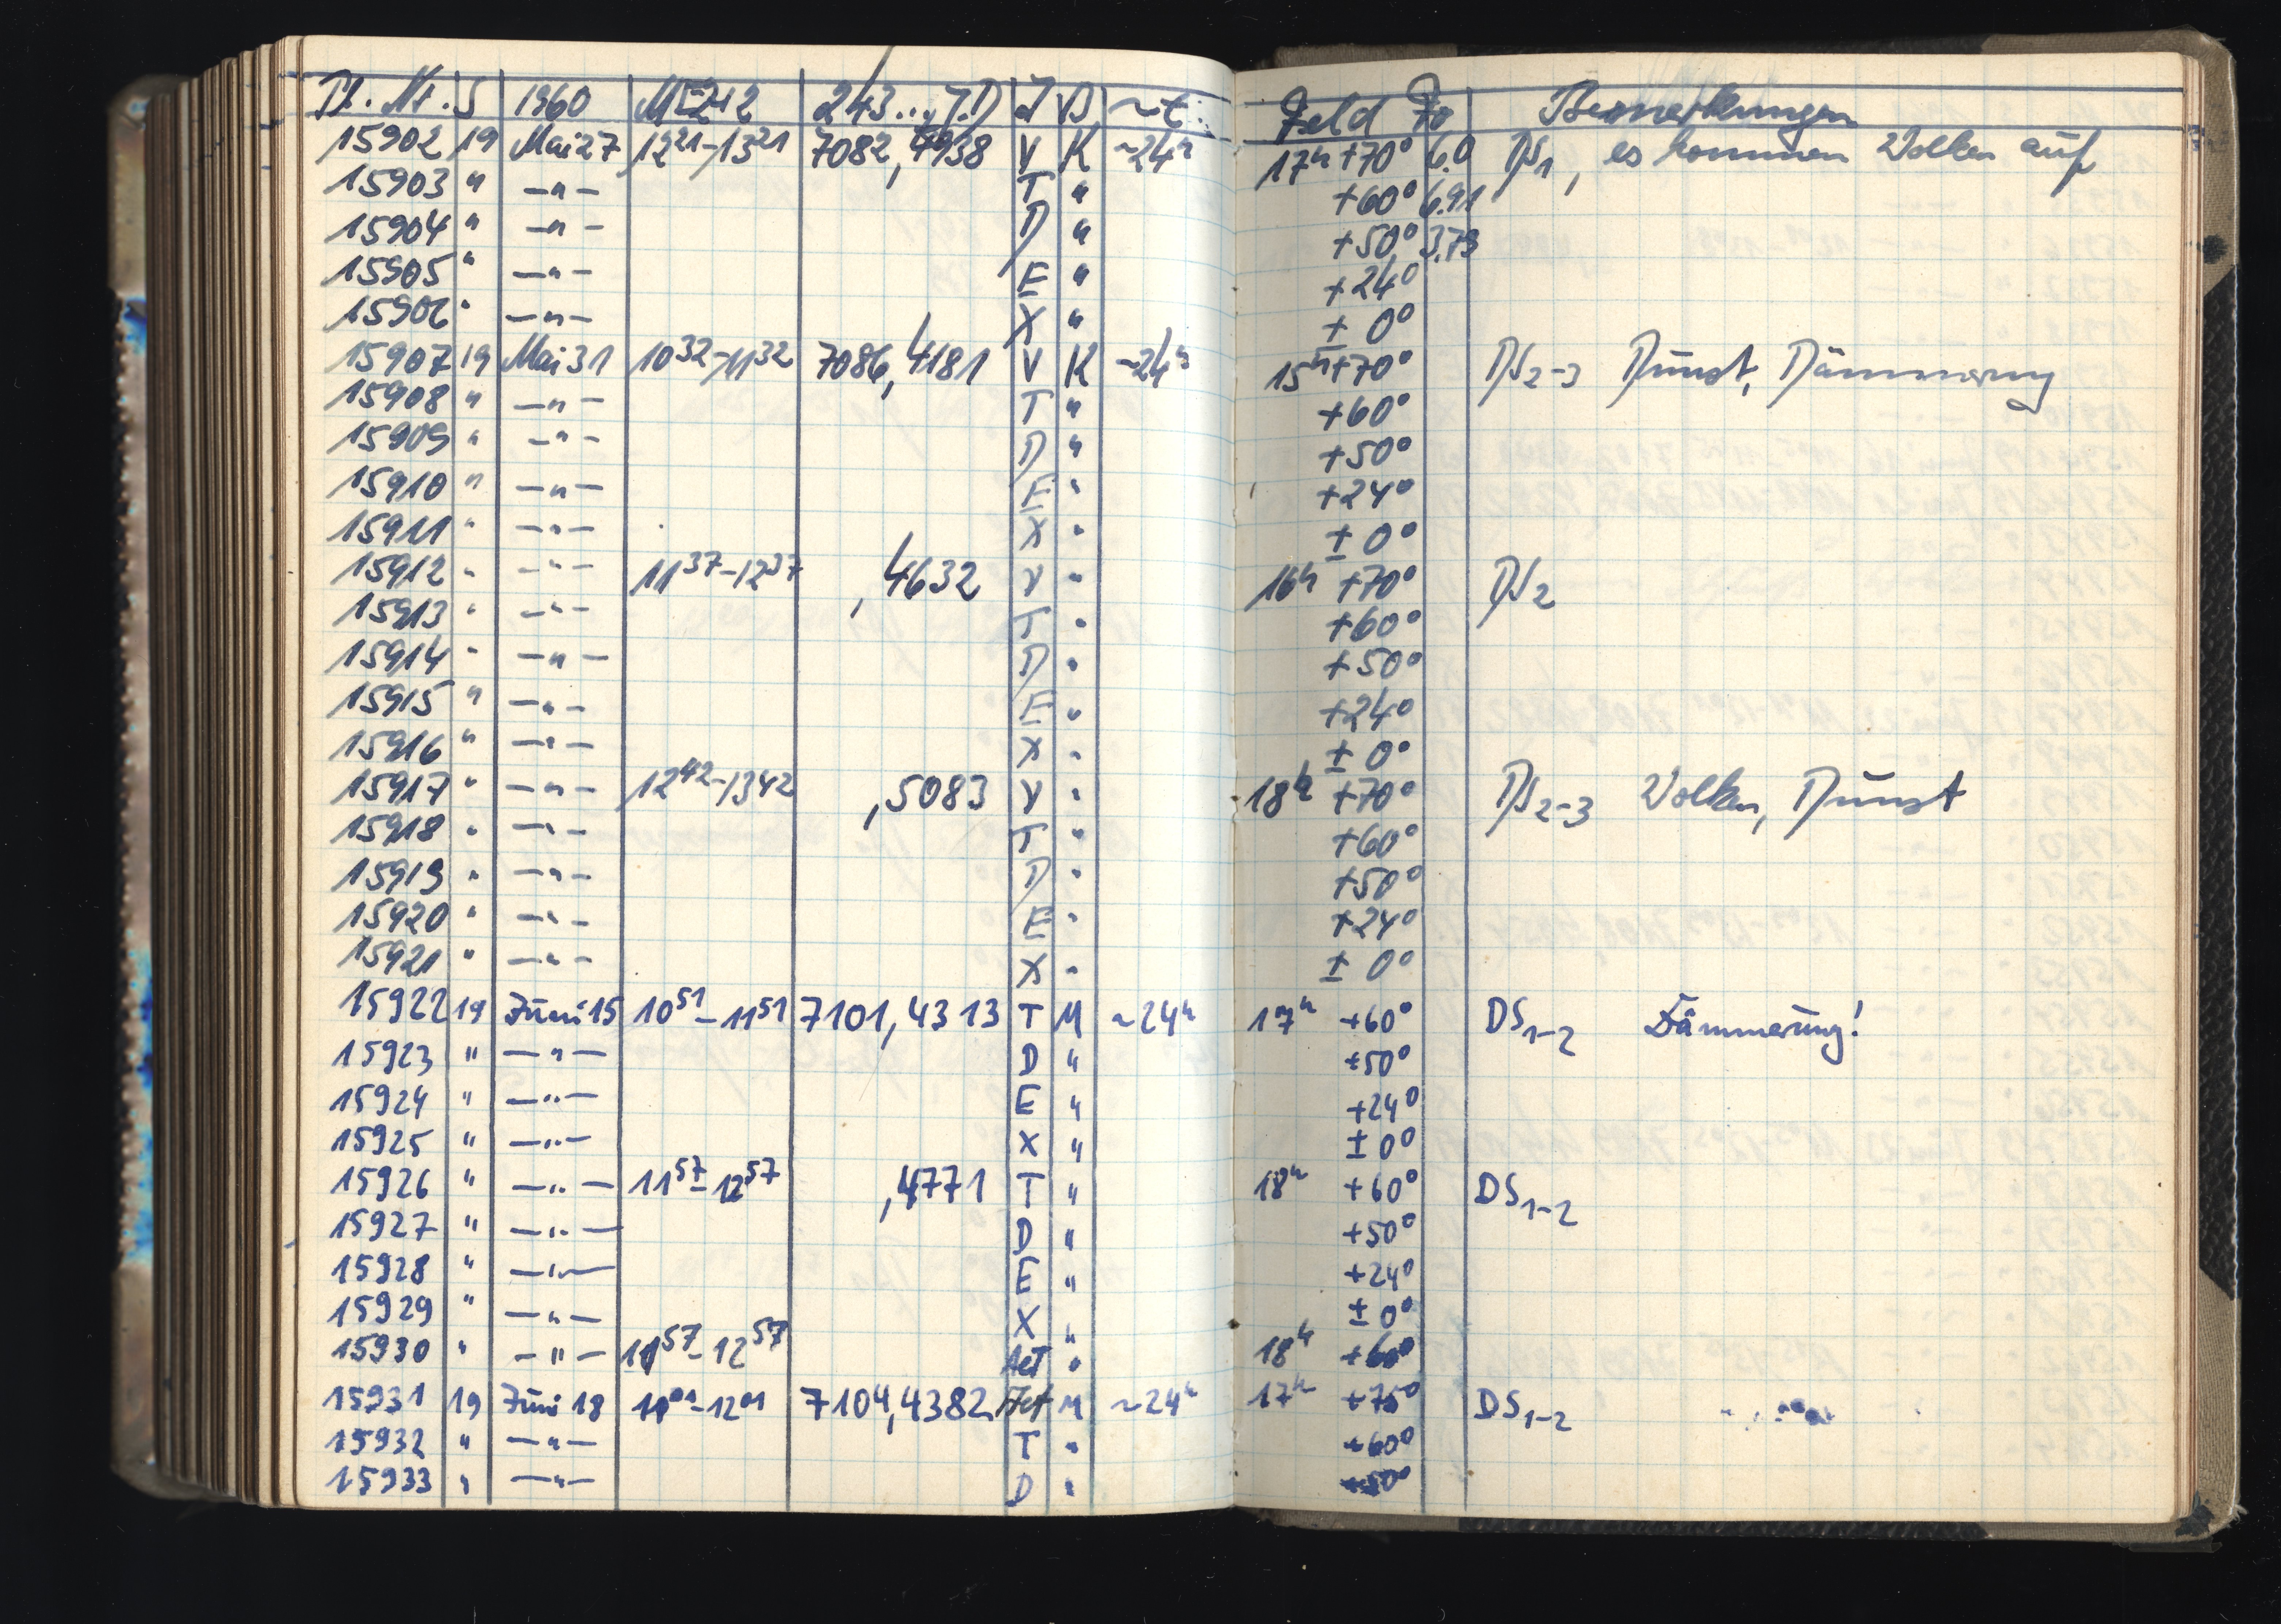 Pl. Nr. S 1960 MEZ-12 243... J.D J B ~t Feld Fo Bemerkungen
15902 19 Mai 27 12 21 - 13 21 7082,4938 V K ~24h 17h +70° 6.0 DS1, es kommen Wolken auf
15903 " —"— T " +60° 6.91
15904 " —"— D " +50° 3.73
15905 " —"— E " +24°
15906 " —"— X " ± 0°
15907 19 Mai 31 10 32 - 11 32 7086,4181 V K ~24h 15h +70° DS2-3 Dunst, Dämmerung
15908 " —"— T " +60°
15909 " —"— D " +50°
15910 " —"— E " +24°
15911 " —"— X " ± 0°
15912 " —"— 11 37 - 12 37 ,4632 V " 16h +70° DS2
15913 " —"— T " +60°
15914 " —"— D " +50°
15915 " —"— E " +24°
15916 " —"— X " ± 0°
15917 " —"— 12 42 - 13 42 ,5083 V " 18h +70° DS2-3 Wolken, Dunst
15918 " —"— T " +60°
15919 " —"— D " +50°
15920 " —"— E " +24°
15921 " —"— X " ± 0°
15922 19 Juni 15 10 51 - 11 51 7101,4313 T M ~24h 17h +60° DS1-2 Dämmerung!
15923 " —"— D " +50°
15924 " —"— E " +24°
15925 " —"— X " ± 0°
15926 " —"— 11 57 - 12 57 ,4771 T " 18h +60° DS1-2
15927 " —"— D " +50°
15928 " —"— E " +24°
15929 " —"— X " ± 0°
15930 " —"— 11 57 - 12 57 AeT " 18h +60°
15931 19 Juni 18 11 01 - 12 01 7104,4382 M ~24h 17h +75° DS1-2
15932 " —"— T " +60°
15933 " —"— D " +50°